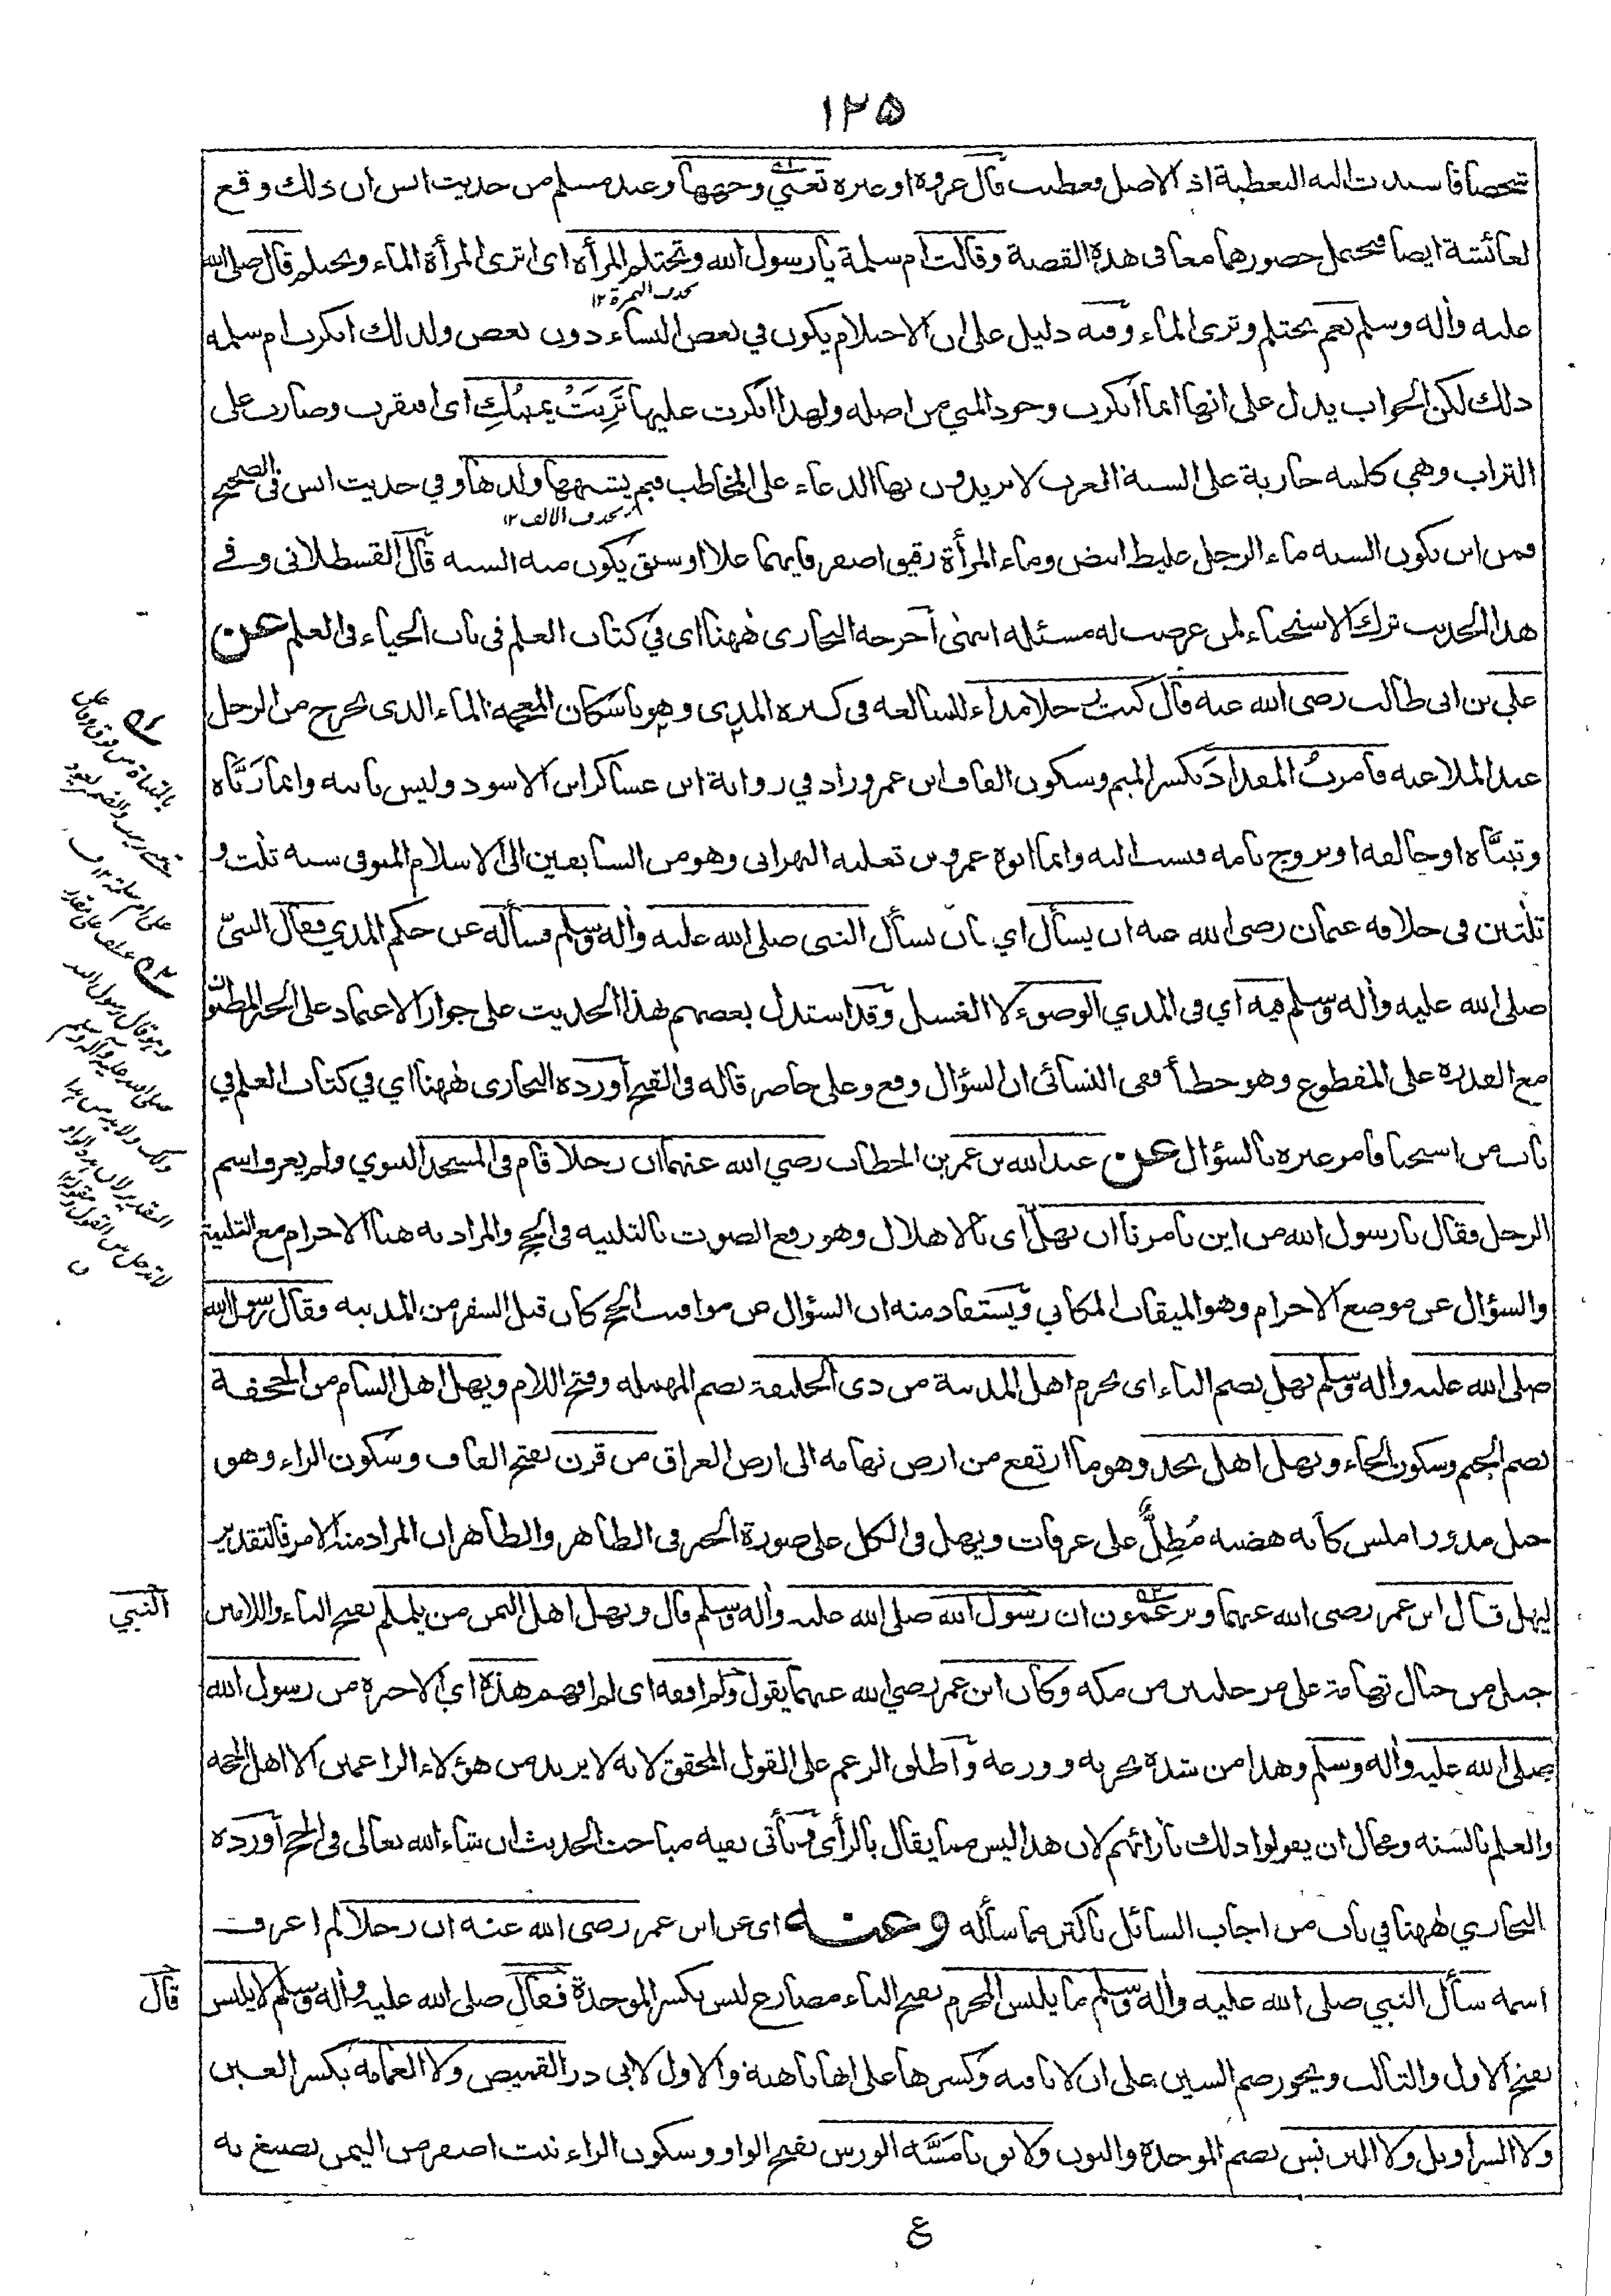 ١٢٥
شخصا فاسندت اليه التغطية اذ الاصل فغطت قال عروة او غيره تعني وجهها وعند مسلم من حديث انس ان ذلك وقع
لعائشة ايضا فيحتمل حضورهما معا في هذه القصة وقالت ام سلمة يا رسول الله وتحتلم المرأة اى اترى المرأة الماء وتحتلم قال صلى الله
بحذف الهمزة ١٢
عليه وأله وسلم نعم تحتلم وترى الماء وفيه دليل على ان الاحتلام يكون في بعض النساء دون بعض ولذلك انكرت ام سلمه
ذلك لكن الجواب يدل على انها انما انكرت وجود المني من اصله ولهذا انكرت عليها تَرِبَتْ يمينُكِ اى افتقرت وصارت على
التراب وهي كلمه جارية على السنة العرب لا يريدون بها الدعاء على المخاطب فبم يشبهها ولدها وفي حديث انس في الصحيح
بحذف الالف ١٢
فمن اين يكون الشبه ماء الرجل غليظ ابيض وماء المرأة رقيق اصفر فايهما علا او سبق يكون منه الشبه قال القسطلانى وفے
هذا الحديث ترك الاستحياء لمن عرضت له مسئله انتهى أخرجه البخارى ههنا اى في كتاب العلم فى باب الحياء فى العلم عن
على بن ابى طالب رضى الله عنه قال كنت رجلا مذاء للمبالغه فى كثره المذى وهو باسكان المعجمة الماء الذى يخرج من الرجل
عند الملاعبه فامرت المقدادَ بكسر الميم وسكون القاف ابن عمرو زاد في رواية ابن عساكر ابن الاسود وليس بابيه وانما ربَّاه
وتبنَّاه او حالفه او تزوج بامه فنسب اليه وانما ابوه عمرو بن ثعلبه البهرانى وهو من السابقين الى الاسلام المتوفى سنه ثلث و
ثلثين فى خلافه عثمان رضى الله عنه ان يسأل اي بان يسأل النبى صلى الله عليه وأله وسلم فسأله عن حكم المذي فقال النبىّ
صلى الله عليه وأله وسلم فيه اي فى المذي الوضوء لا الغسل وقد استدل بعضهم بهذا الحديث على جواز الاعتماد على الخبر المظنون
مع القدره على المقطوع وهو خطأ ففى النسائى ان السؤال وقع وعلى حاضر قاله فى الفتح أورده البخارى ههنا اي في كتاب العلم في
باب من استحيا فامر غيره بالسؤال عن عبد الله بن عمر بن الخطاب رضي الله عنهما ان رجلا قام فى المسجد النبوي ولم يعرف اسم
الرجل فقال يا رسول الله من اين تامرنا ان نهل اى بالاهلال وهو رفع الصوت بالتلبيه فى الحج والمراد به هنا الاحرام مع التلبية
والسؤال عن موضع الاحرام وهو الميقات المكاني ويستفاد منه ان السؤال عن مواقيت الحج كان قبل السفر من المدينه فقال رسول الله
صلى الله عليه وأله وسلم يهل بضم الياء اى يحرم اهل المدينة من ذى الحليفة بضم المهمله وفتح اللام ويهل اهل الشام من الجحفة
بضم الجيم وسكون الحاء ويهل اهل نجد وهو ما ارتفع من ارض تهامه الى ارض العراق من قرن بفتح القاف وسكون الراء وهو
جبل مدوّر املس كانه هضبه مُطِلٌّ على عرفات ويهل فى الكل على صورة الخبر فى الظاهر والظاهر ان المراد منه الامر فالتقدير
ليهل قال ابن عمر رضى الله عنهما ويزعمون ان رسول الله صلى الله عليه وأله وسلم قال ويهل اهل اليمن من يلملم بفتح الياء واللامين
النبي
جبل من جبال تهامة على مرحلتين من مكه وكان ابن عمر رضي الله عنهما يقول ولم افقه اى لم افهم هذه اي الاخره من رسول الله
صلى الله عليه وأله وسلم وهذا من شدة تحريه وورعه واطلق الزعم على القول المحقق لانه لا يريد من هؤلاء الزاعمين الا اهل الحجه
والعلم بالسنه ومحال ان يقولوا ذلك بأرائهم لان هذا ليس مما يقال بالرأى وتأتى بقيه مباحث الحديث ان شاء الله تعالى فى الحج أورده
البخاري ههنا في باب من اجاب السائل باكثر مما سأله وعنه اى عن ابن عمر رضى الله عنه ان رجلا لم اعرف
اسمه سأل النبي صلى الله عليه وأله وسلم ما يلبس المحرم بفتح الياء مضارع لبس بكسر الموحدة فقال صلى الله عليه وأله وسلم لا يلبس
قال
بفتح الاول والثالث ويجوز ضم السين على ان لا نافيه وكسرها على انها ناهية والاول لابى ذر القميص ولا العمامه بكسر العين
ولا السراويل ولا البرنس بضم الموحدة والنون ولا ثوبا مَسَّه الورس بفتح الواو وسكون الراء نبت اصفر من اليمن يصبغ به
ع